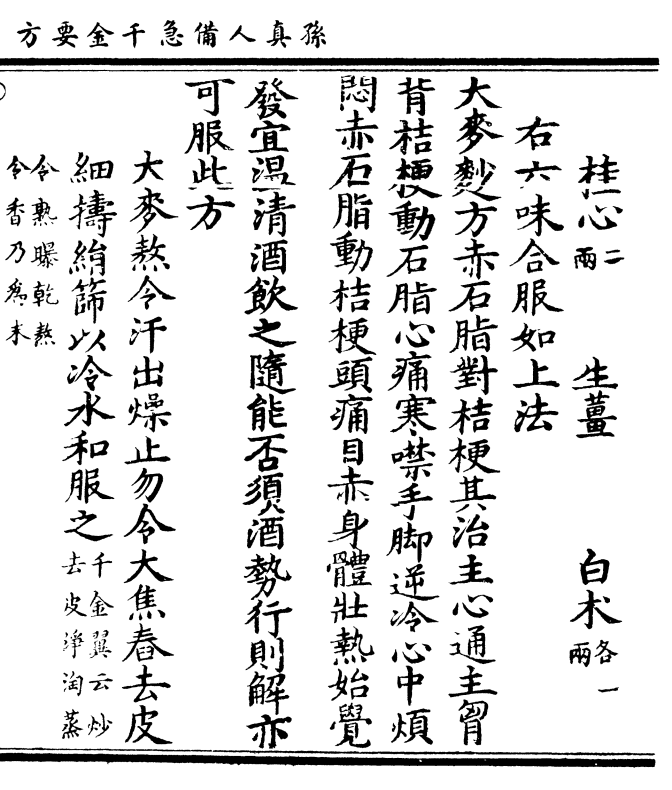 孫真人備急千金要方
桂心二兩 生薑 白朮各一兩
右六味合服如上法
大麥麨方赤石脂對桔梗其治主心通主胷
背桔梗動石脂心痛寒噤手脚逆冷心中煩
悶赤石脂動桔梗頭痛目赤身體壯熱始覺
發宜溫清酒飲之隨能否須酒勢行則解亦
可服此方
大麥熬令汗出燥止勿令大焦舂去皮
細擣絹篩以冷水和服之千金翼云炒去皮淨淘蒸
令熟曝乾熬令香乃爲末